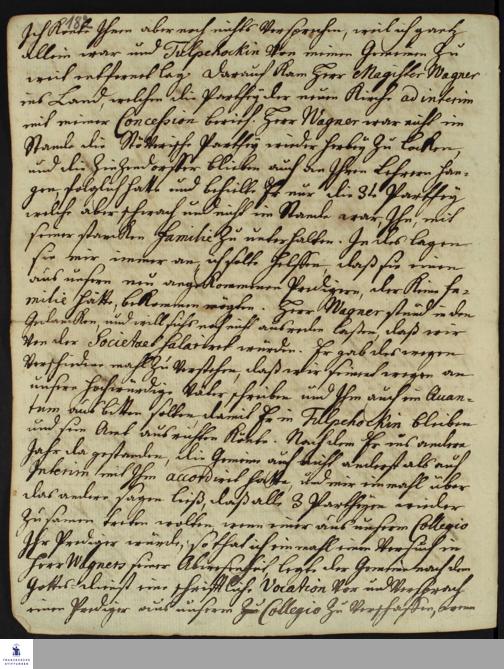 182
Ich konte Ihnen aber noch nichts versprechen, weil ich gantz
allein war und Tulpehockin von meinen Gemeinen zu
weit entfernet lag. Darauf kam Herr Magister Wagner
ins Land, welchen die Parthey der neuen Kirche ad interim
mit meiner Concession berief. Herr Wagner war nicht im
Stande die Stöverische Parthey wieder herbey zu locken,
und die Zinzendorffer blieben auch an Ihren Lehrern han-
gen, folglich hatte und behielte Er nur die 3te Parthey
welche aber schwach und nicht im Stande war, Ihn, mit
seiner starcken Familie zu unterhalten. Indes lagen
sie mir immer an, ich solte helffen, daß sie einen
aus unsern neu angekommenen Predigern, der keine Fa-
milie hätte, bekommen möchten. Herr Wagner stund in den
Gedancken, und will sichs noch nicht ausreden laßen, daß wir
von der Societaet salarirt würden. Er gab deswegen
verschiedene mahl zu verstehen, daß wir seinetwegen an
unsere Hochwürdige Väter schreiben und Ihm auch ein Quan-
tum ausbitten solten damit Er in Tulpehockin bleiben
und sein Amt ausrichten könte. Nachdem Er ins andere
Jahr da gestanden, die Gemeine auch nicht anderst als auf
Interim mit Ihm accordiret hatte, und mir einmahl über
das andere sagen ließ, daß alle 3 Partheyen wieder
zusamen treten wolten, wenn einer aus unserm Collegio
Ihr Prediger würde, so that ich einmahl einen Versuch in
Herr Wagners seiner Abwesenheit, legte der Gemeine nach dem
Gottesdienst eine schriftliche Vocation vor und versprach
einen Prediger aus unserm Collegio zu verschaffen, wenn
FRANCKESCHE
STIFTUNGEN